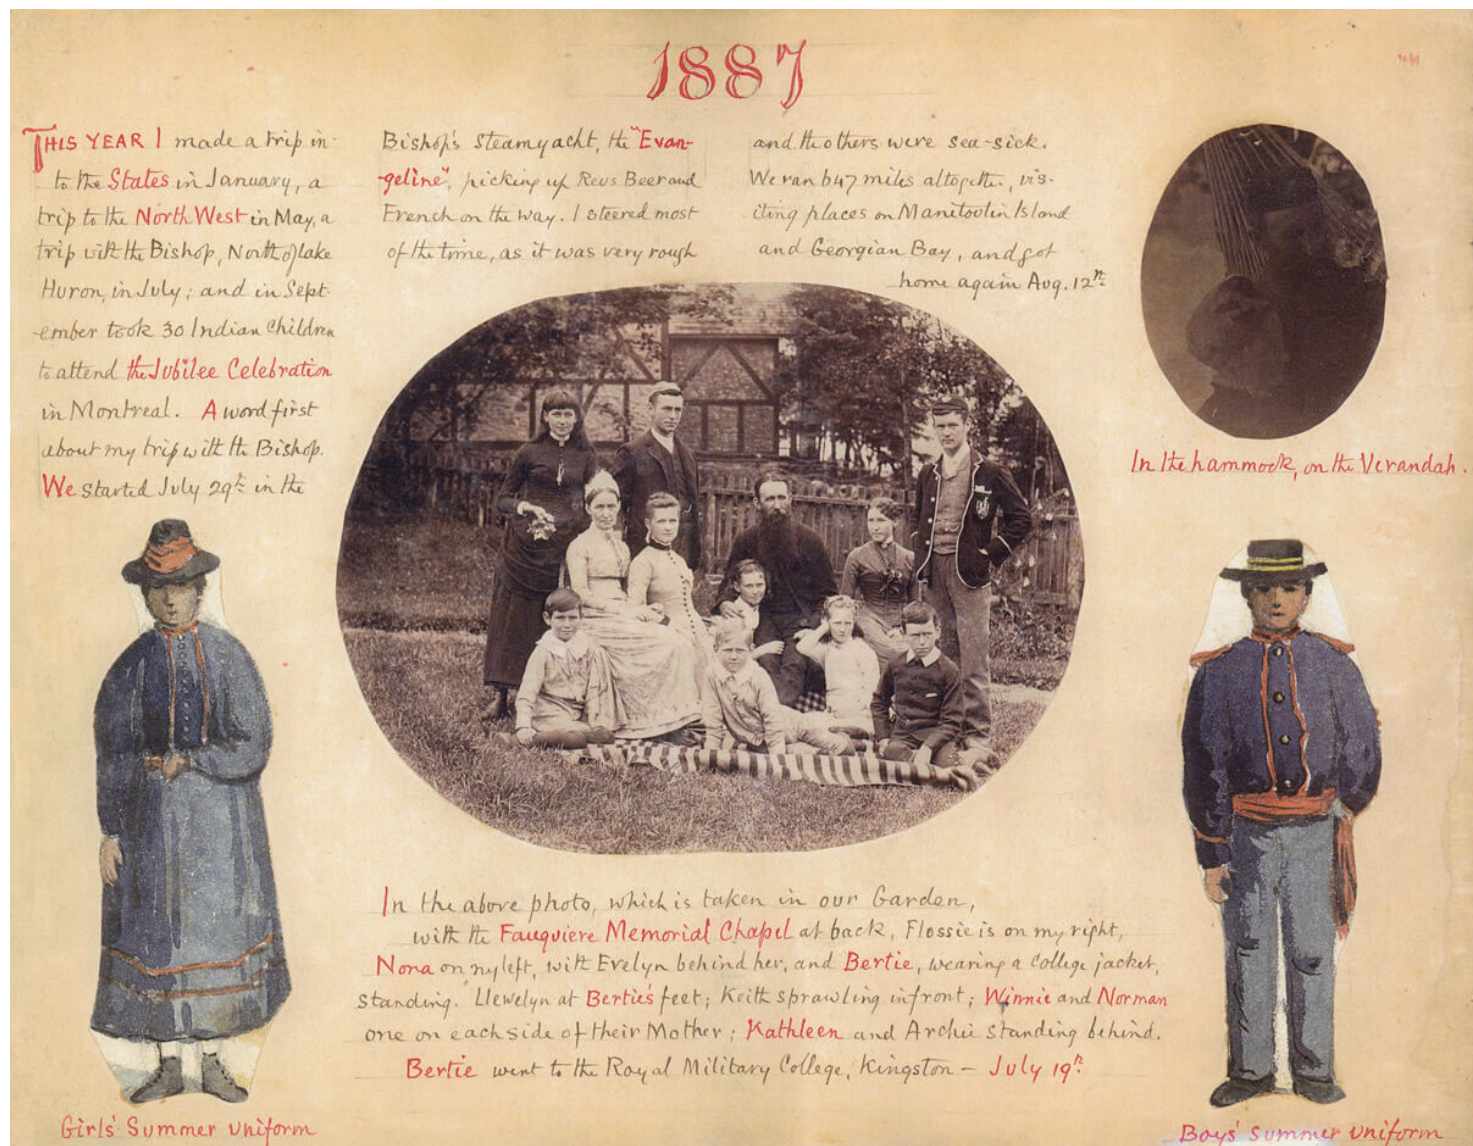 1887
THIS YEAR I made a trip in-
to the States in January, a
trip to the North West in May, a
trip with the Bishop, North of Lake
Huron, in July; and in Sept-
-ember took 30 Indian Children
to attend the Jubilee Celebration
in Montreal. A word first
about my trip with the Bishop.
We started July 29th in the
Bishop's steamyacht, the "Evan-
-geline", picking up Revs Beer and
French on the way. I steered most
of the time, as it was very rough
and the others were sea-sick.
We ran 647 miles altogether, vis-
iting places on Manitoulin Island
and Georgian Bay, and got
home again Aug. 12th
In the hammock, on the Verandah.
In the above photo, which is taken in our Garden,
with the Fauquiere Memorial Chapel at back, Flossie is on my right,
Nona on my left, with Evelyn behind her, and Bertie, wearing a College jacket,
standing. Llewelyn at Bertie's feet; Keith sprawling in front; Winnie and Norman
one on each side of their Mother; Kathleen and Archie standing behind.
Bertie went to the Royal Military College, Kingston – July 19th
Girls' Summer uniform
Boys' Summer uniform